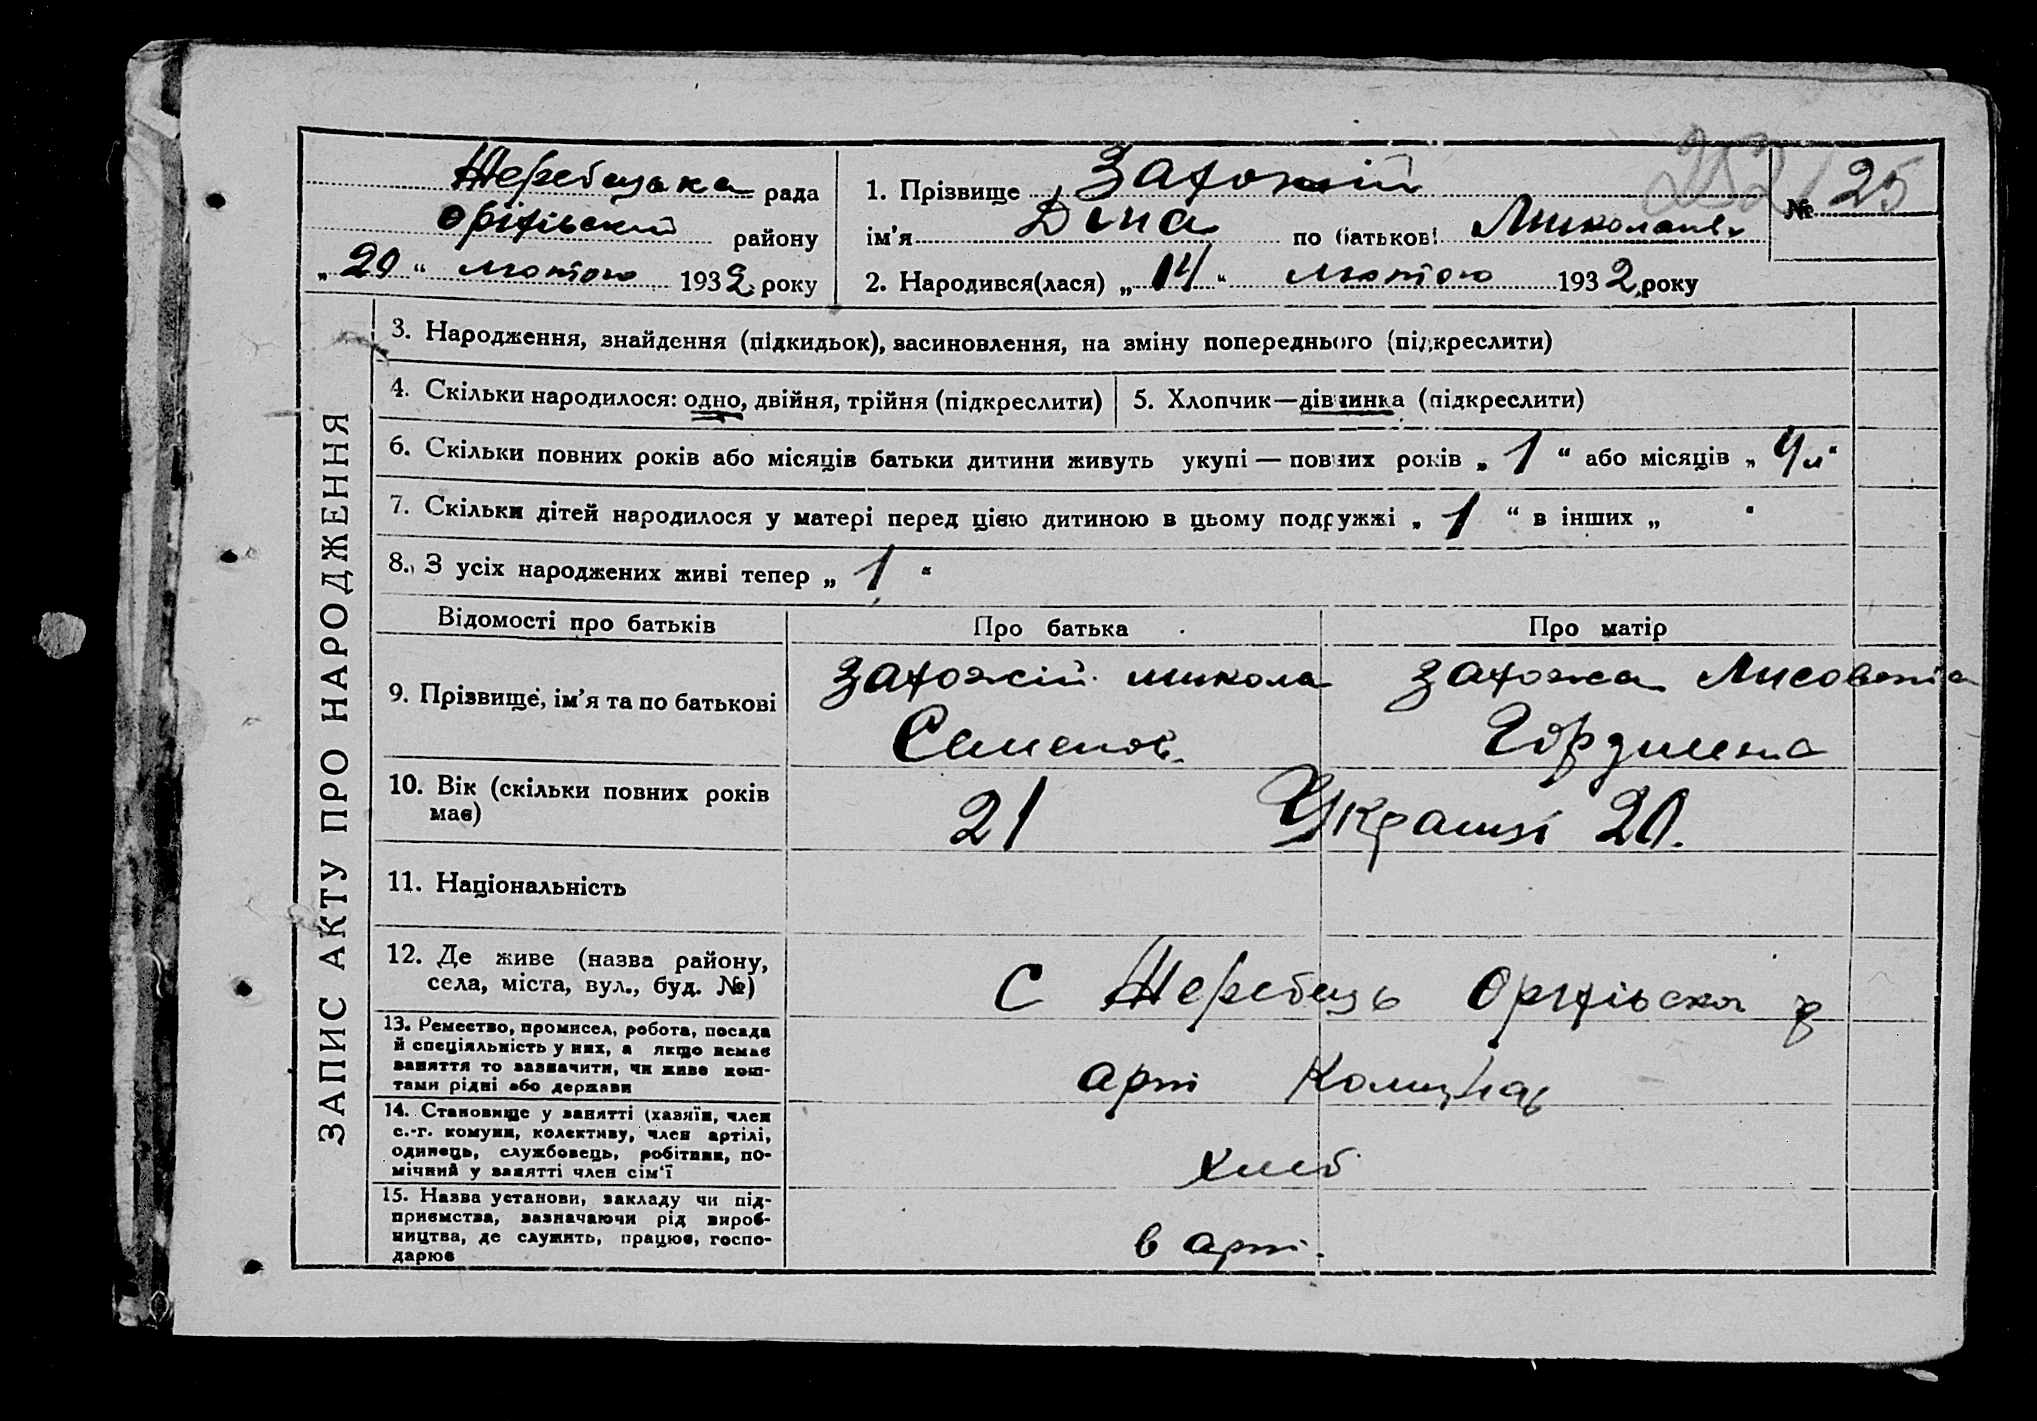 Жеребецька рада
Оріхівський району
„ 20 “ лютого 1932 року
1. Прізвище Захожій
ім’я Діна по батькові Миколаїв
№ 25
252
2. Народився(лася) „ 14 “ лютого 1932 року
ЗАПИС АКТУ ПРО НАРОДЖЕННЯ
3. Народження, знайдення (підкидьок), засиновлення, на зміну попереднього (підкреслити)
4. Скільки народилося: одно, двійня, трійня (підкреслити)
5. Хлопчик—дівчинка (підкреслити)
6. Скільки повних років або місяців батьки дитини живуть укупі — повних років „ 1 “ або місяців „ 4 м “
7. Скільки дітей народилося у матері перед цією дитиною в цьому подружжі „ 1 “ в інших „ “
8. З усіх народжених живі тепер „ 1 “
Відомості про батьків
Про батька
Про матір
9. Прізвище, ім’я та по батькові
Захожій Микола
Семенов.
Захожа Лисовета
Гордиевна
10. Вік (скільки повних років
має)
21
20.
Украинці
11. Національність
12. Де живе (назва району,
села, міста, вул., буд. №)
С Жеребець Оріхівськ р
13. Ремество, промисел, робота, посада
й спеціяльність у них, а якщо немає
заняття то зазначити, чи живе кош-
тами рідні або держави
арт Комунар
14. Становище у занятті (хазяїн, член
с.-г. комуни, колективу, член артілі,
одинець, службовець, робітник, по-
мічний у занятті член сім’ї
хліб
15. Назва установи, закладу чи під-
приємства, зазначаючи рід вироб-
ництва, де служить, працює, госпо-
дарює
в арт.